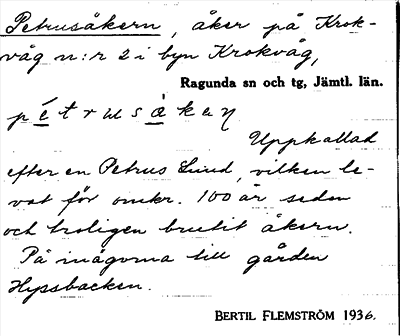 Petrusåkern, åker på Krok-
våg n:r 2 i byn Krokvåg,
Ragunda sn och tg, Jämtl. län.
pétrusàkeɳ
Uppkallad
efter en Petrus Lund, vilken le-
vat för omkr. 100 år sedan
och troligen brutit åkern.
På inägorna till gården
Hyssbacken.
BERTIL FLEMSTRÖM 1936.